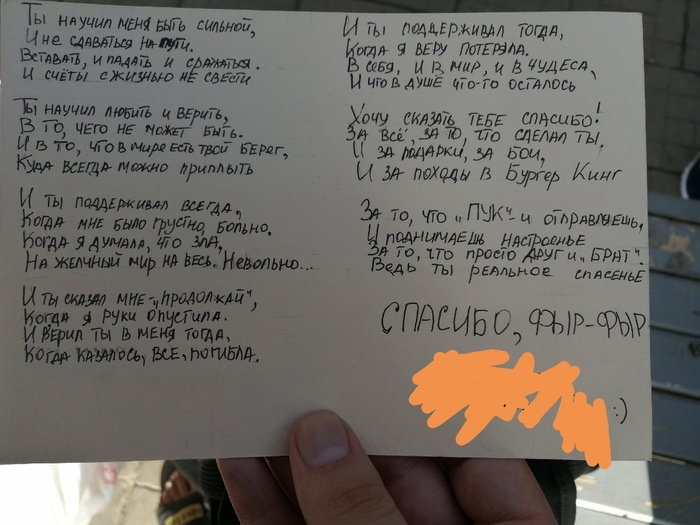 Ты научил меня быть сильной,
И не сдаваться на пути.
Вставать, и падать и сражаться.
И счёты с жизнью не свести
Ты научил любить и верить,
В то, чего не может быть.
И в то, что в мире есть твой берег,
Куда всегда можно приплыть
И ты поддерживал всегда,
Когда мне было грустно, больно.
Когда я думала, что зла,
На желчный мир на весь. Невольно...
И ты сказал мне - "продолжай",
Когда я руки опустила.
И верил ты в меня тогда,
Когда казалось, все, погибла.
И ты поддерживал тогда,
Когда я веру потеряла.
В себя, и в мир, и в чудеса,
И что в душе что-то осталось
Хочу сказать тебе спасибо!
За всё, за то, что сделал ты.
И за подарки, за бои,
И за походы в Бургер Кинг
За то, что "ПУК" - и отправляешь,
И поднимаешь настроенье
За то, что просто друг и "брат".
Ведь ты реальное спасенье
СПАСИБО, ФЫР-ФЫР
:)